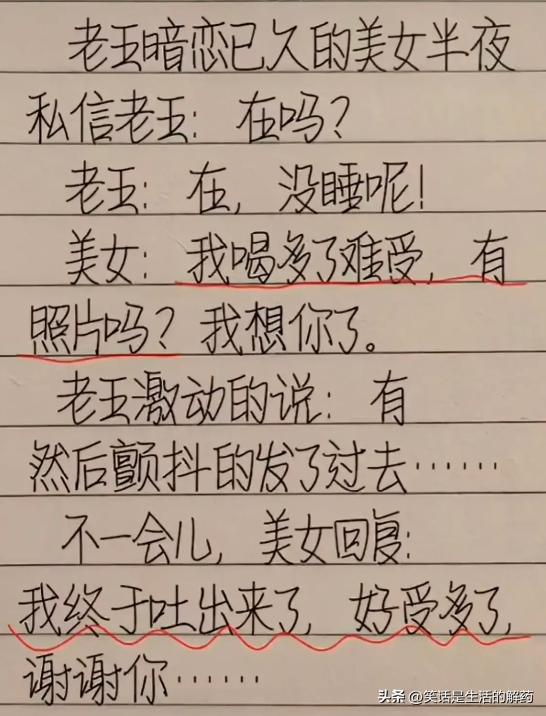 老王暗恋已久的美女半夜
私信老王：在吗？
老王：在，没睡呢！
美女：我喝多了难受，有
照片吗？我想你了。
老王激动的说：有
然后颤抖的发了过去……
不一会儿，美女回复：
我终于吐出来了，好受多了，
谢谢你……
头条 @笑话是生活的解药